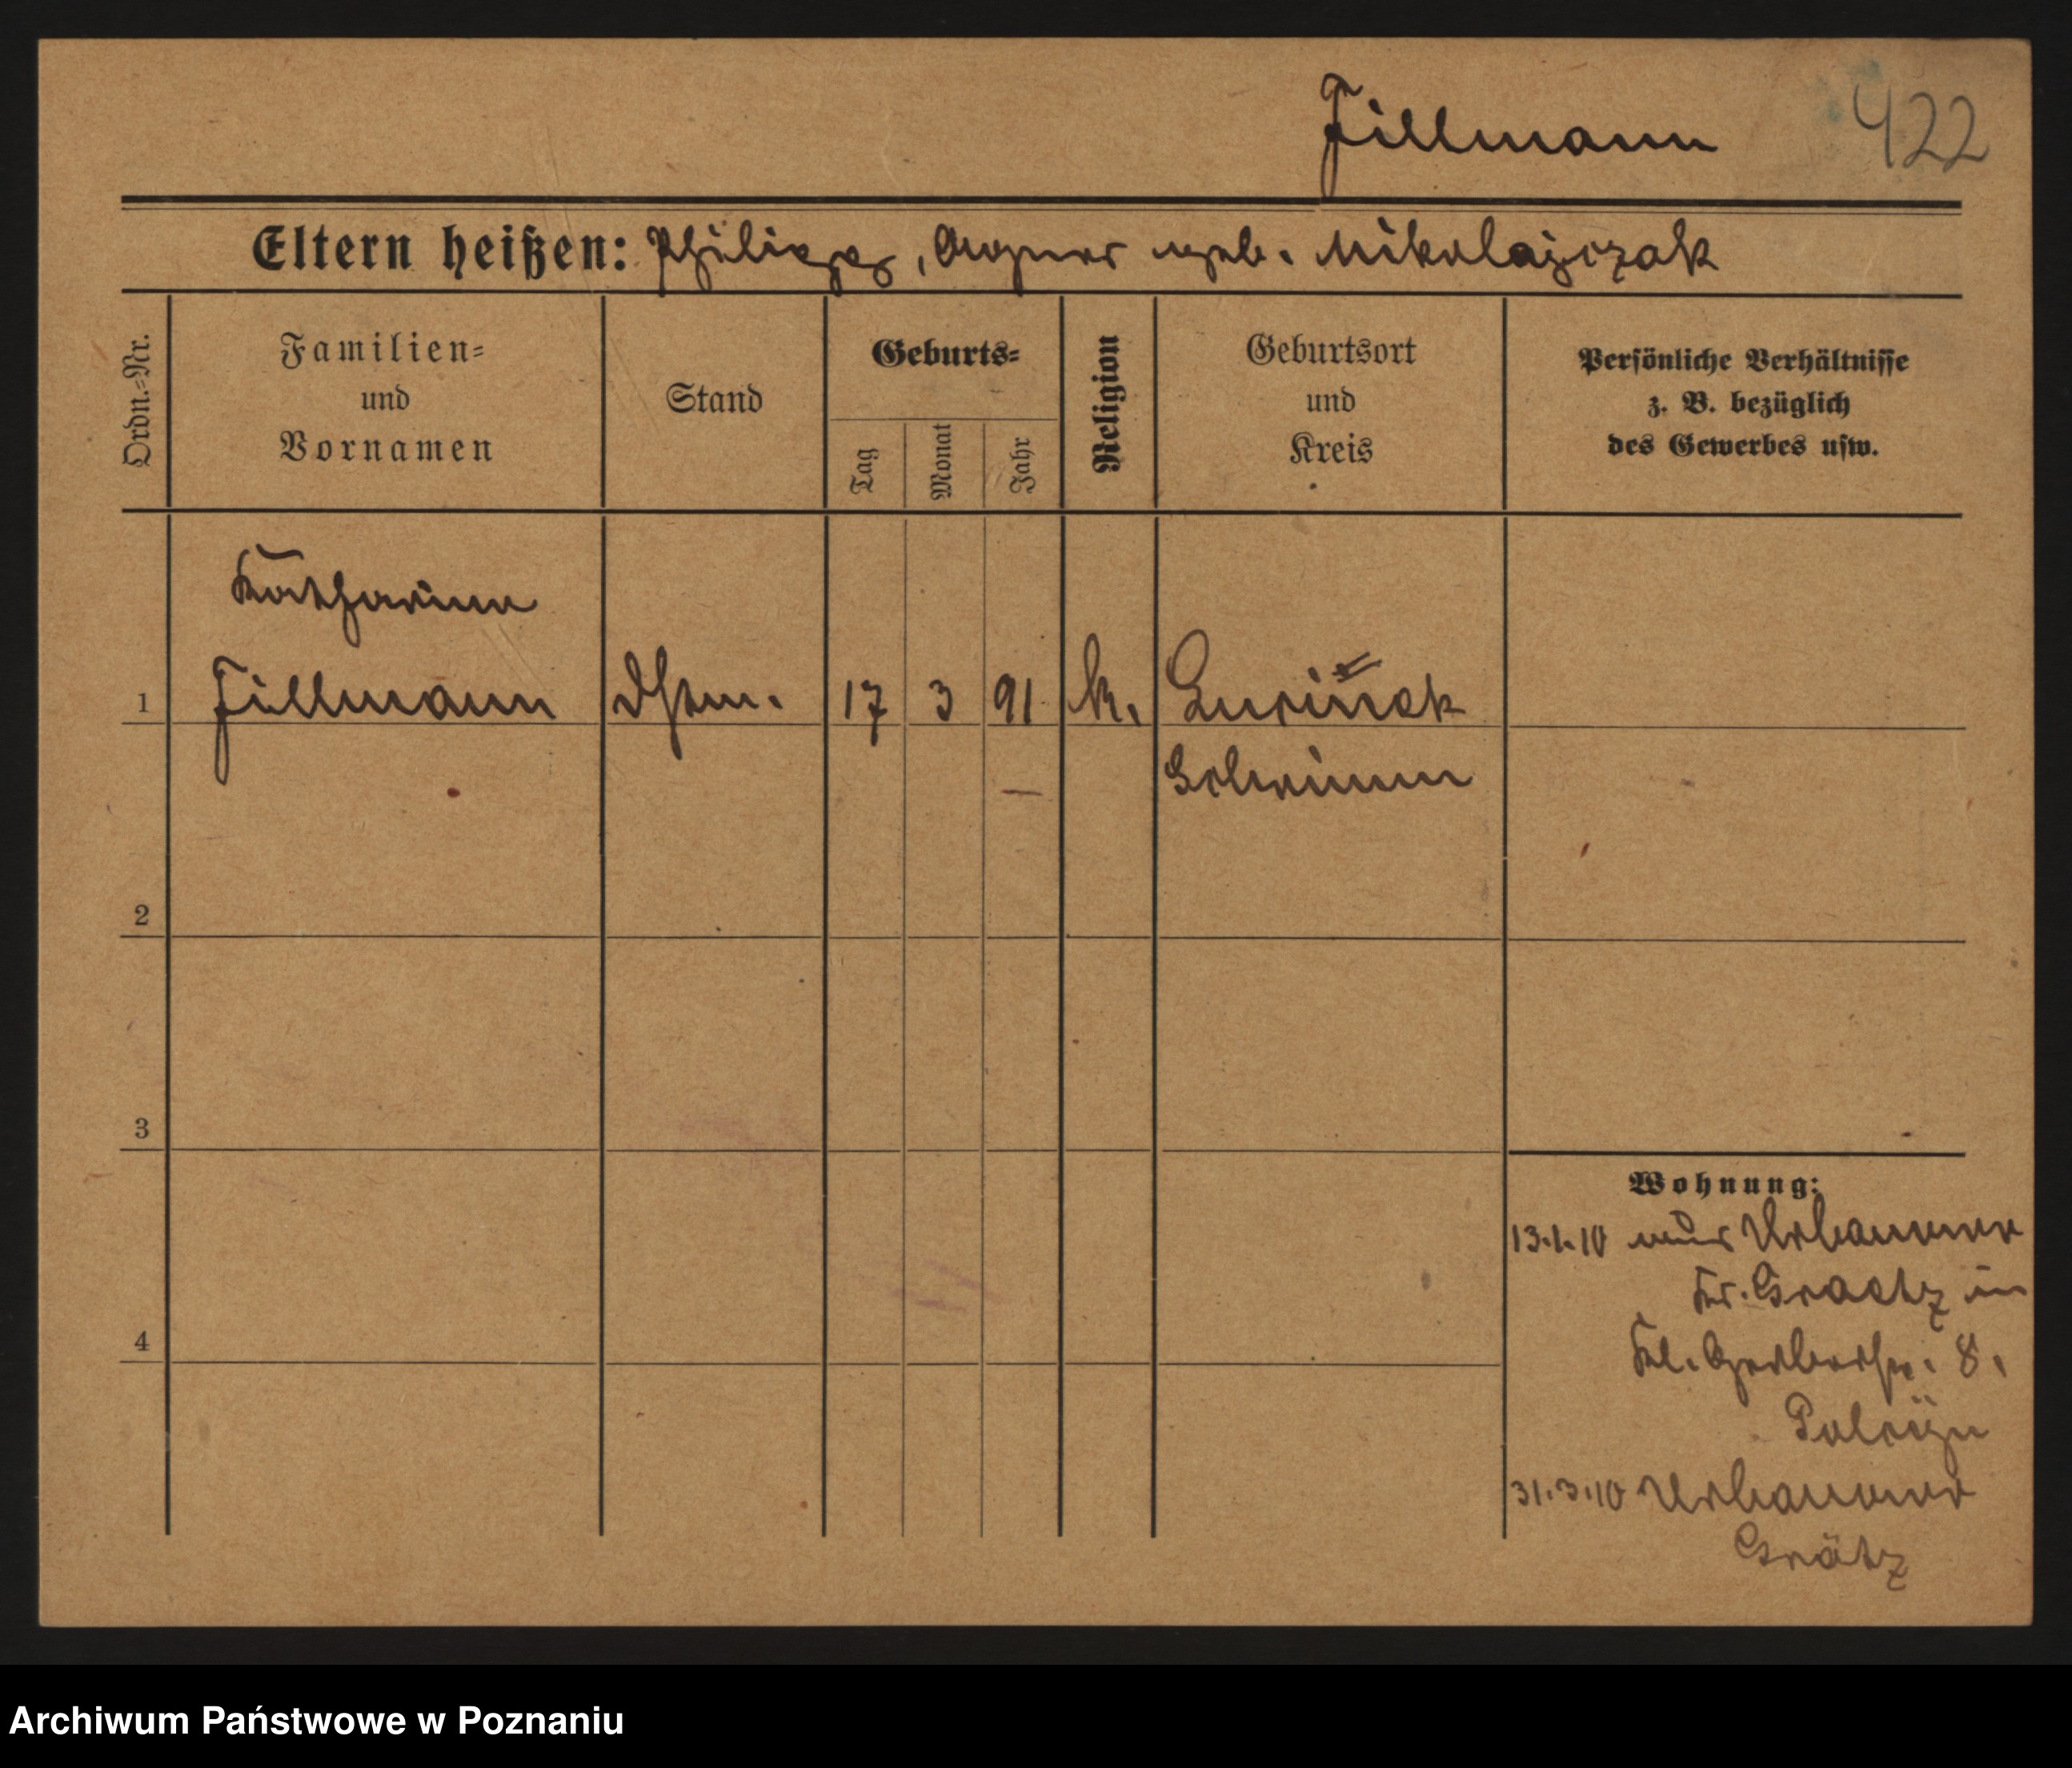 Fillmann 422
Eltern heißen: Philipp, Agnes geb. Mikolajczak
Ordn.-Nr.
Familien-
und
Vornamen
Stand
Geburts-
Tag
Monat
Jahr
Religion
Geburtsort
und
Kreis
Persönliche Verhältnisse
z. B. bezüglich
des Gewerbes usw.
Katharina
1 Fillmann 17 3 91 k.
Schrimm
2
3
4
Wohnung:
13.1.10 aus Urbanowo
Kr. Graetz in
Kl. Gerberstr. 8.
31.3.10 Urbanowo
Grätz
Archiwum Państwowe w Poznaniu